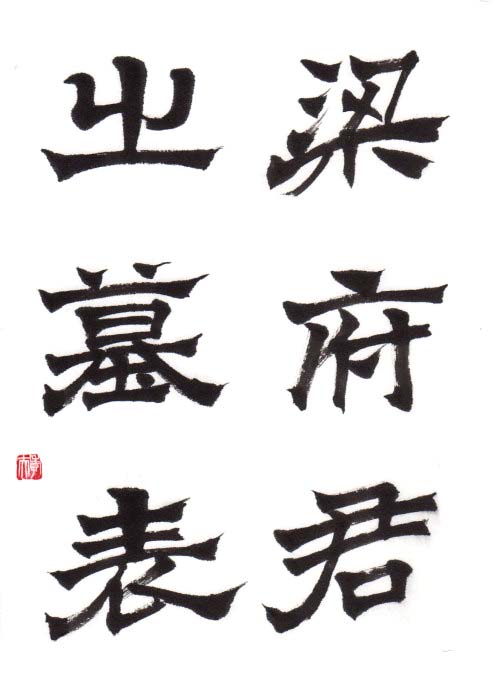 梁府君
之墓表